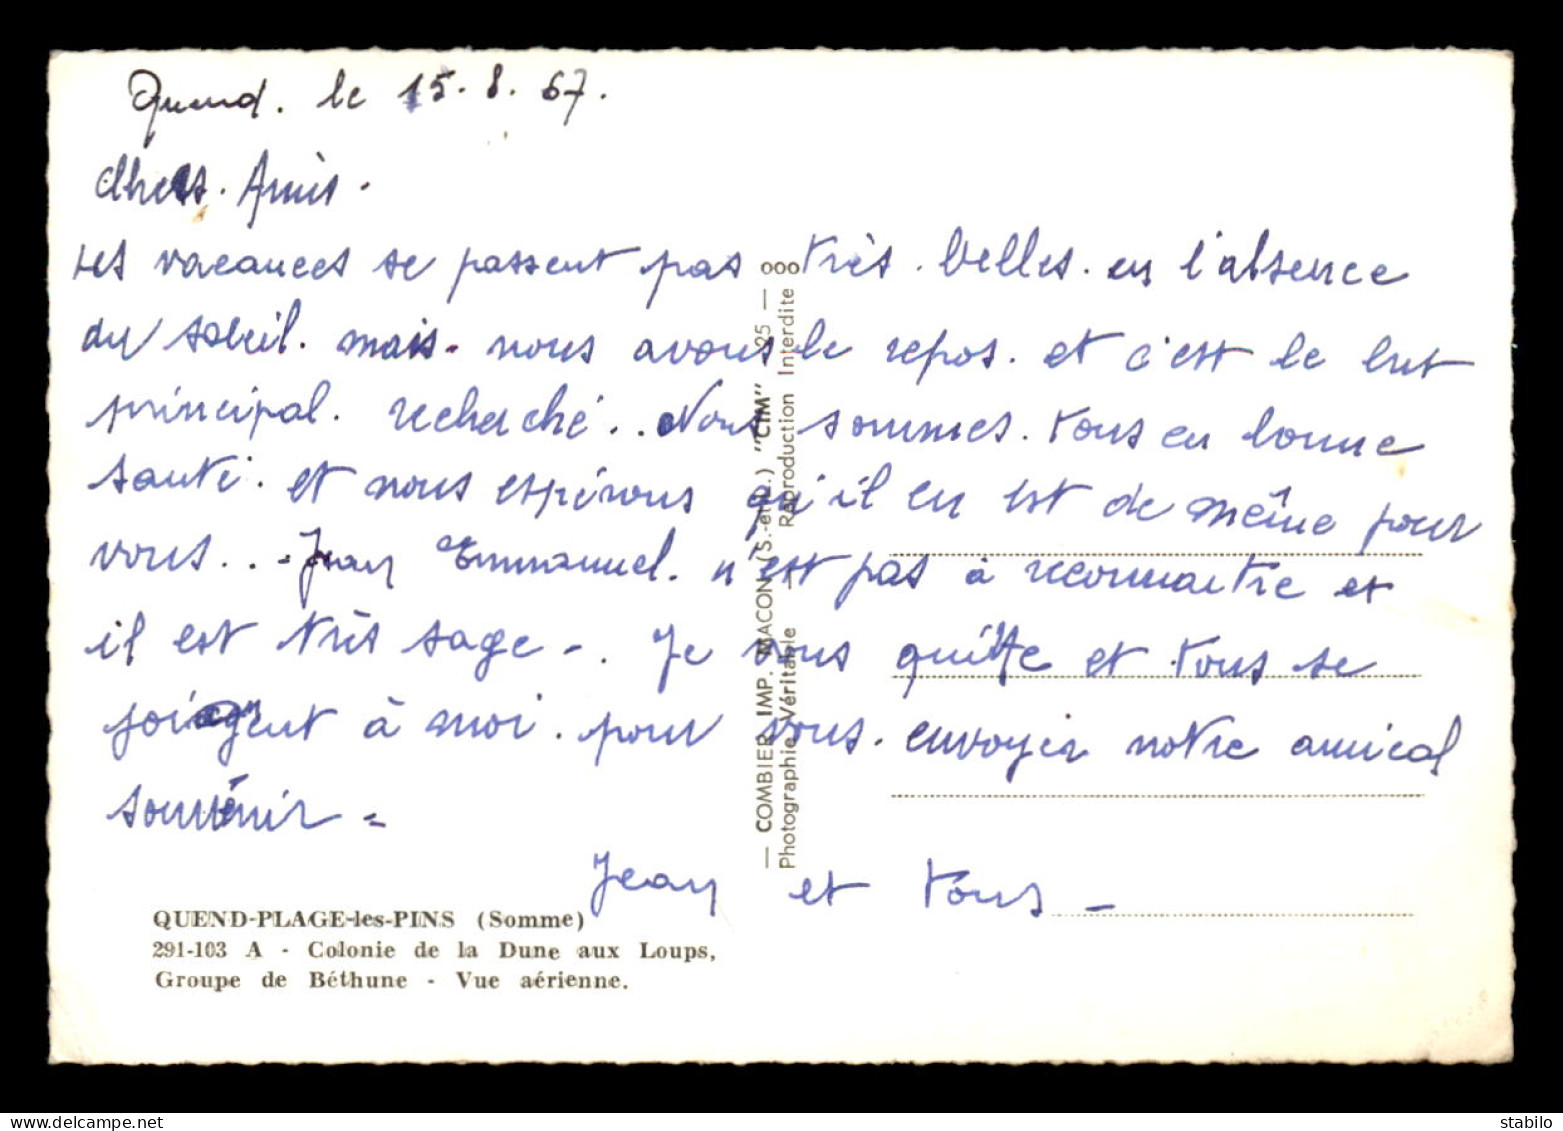 Quend. le 15.8.67.
Chers. Amis.
Les vacances se passent pas très. belles. en l'absence
du soleil. mais. nous avons le repos. et c'est le but
principal. recherché.. Nous sommes. tous en bonne
santé. et nous espérons qu'il en est de même pour
vous.. - Jean Emmanuel. n'est pas à reconnaitre et
il est très sage -. Je vous quitte et tous se
joignent à moi. pour vous. envoyer notre amical
souvenir =
Jean et tous -
QUEND-PLAGE-les-PINS (Somme)
291-103 A - Colonie de la Dune aux Loups,
Groupe de Béthune - Vue aérienne.
— COMBIER IMP. MACON (S.-et-L.) "CIM" — 25 — ooo
Photographie Véritable — Reproduction Interdite
stabilo